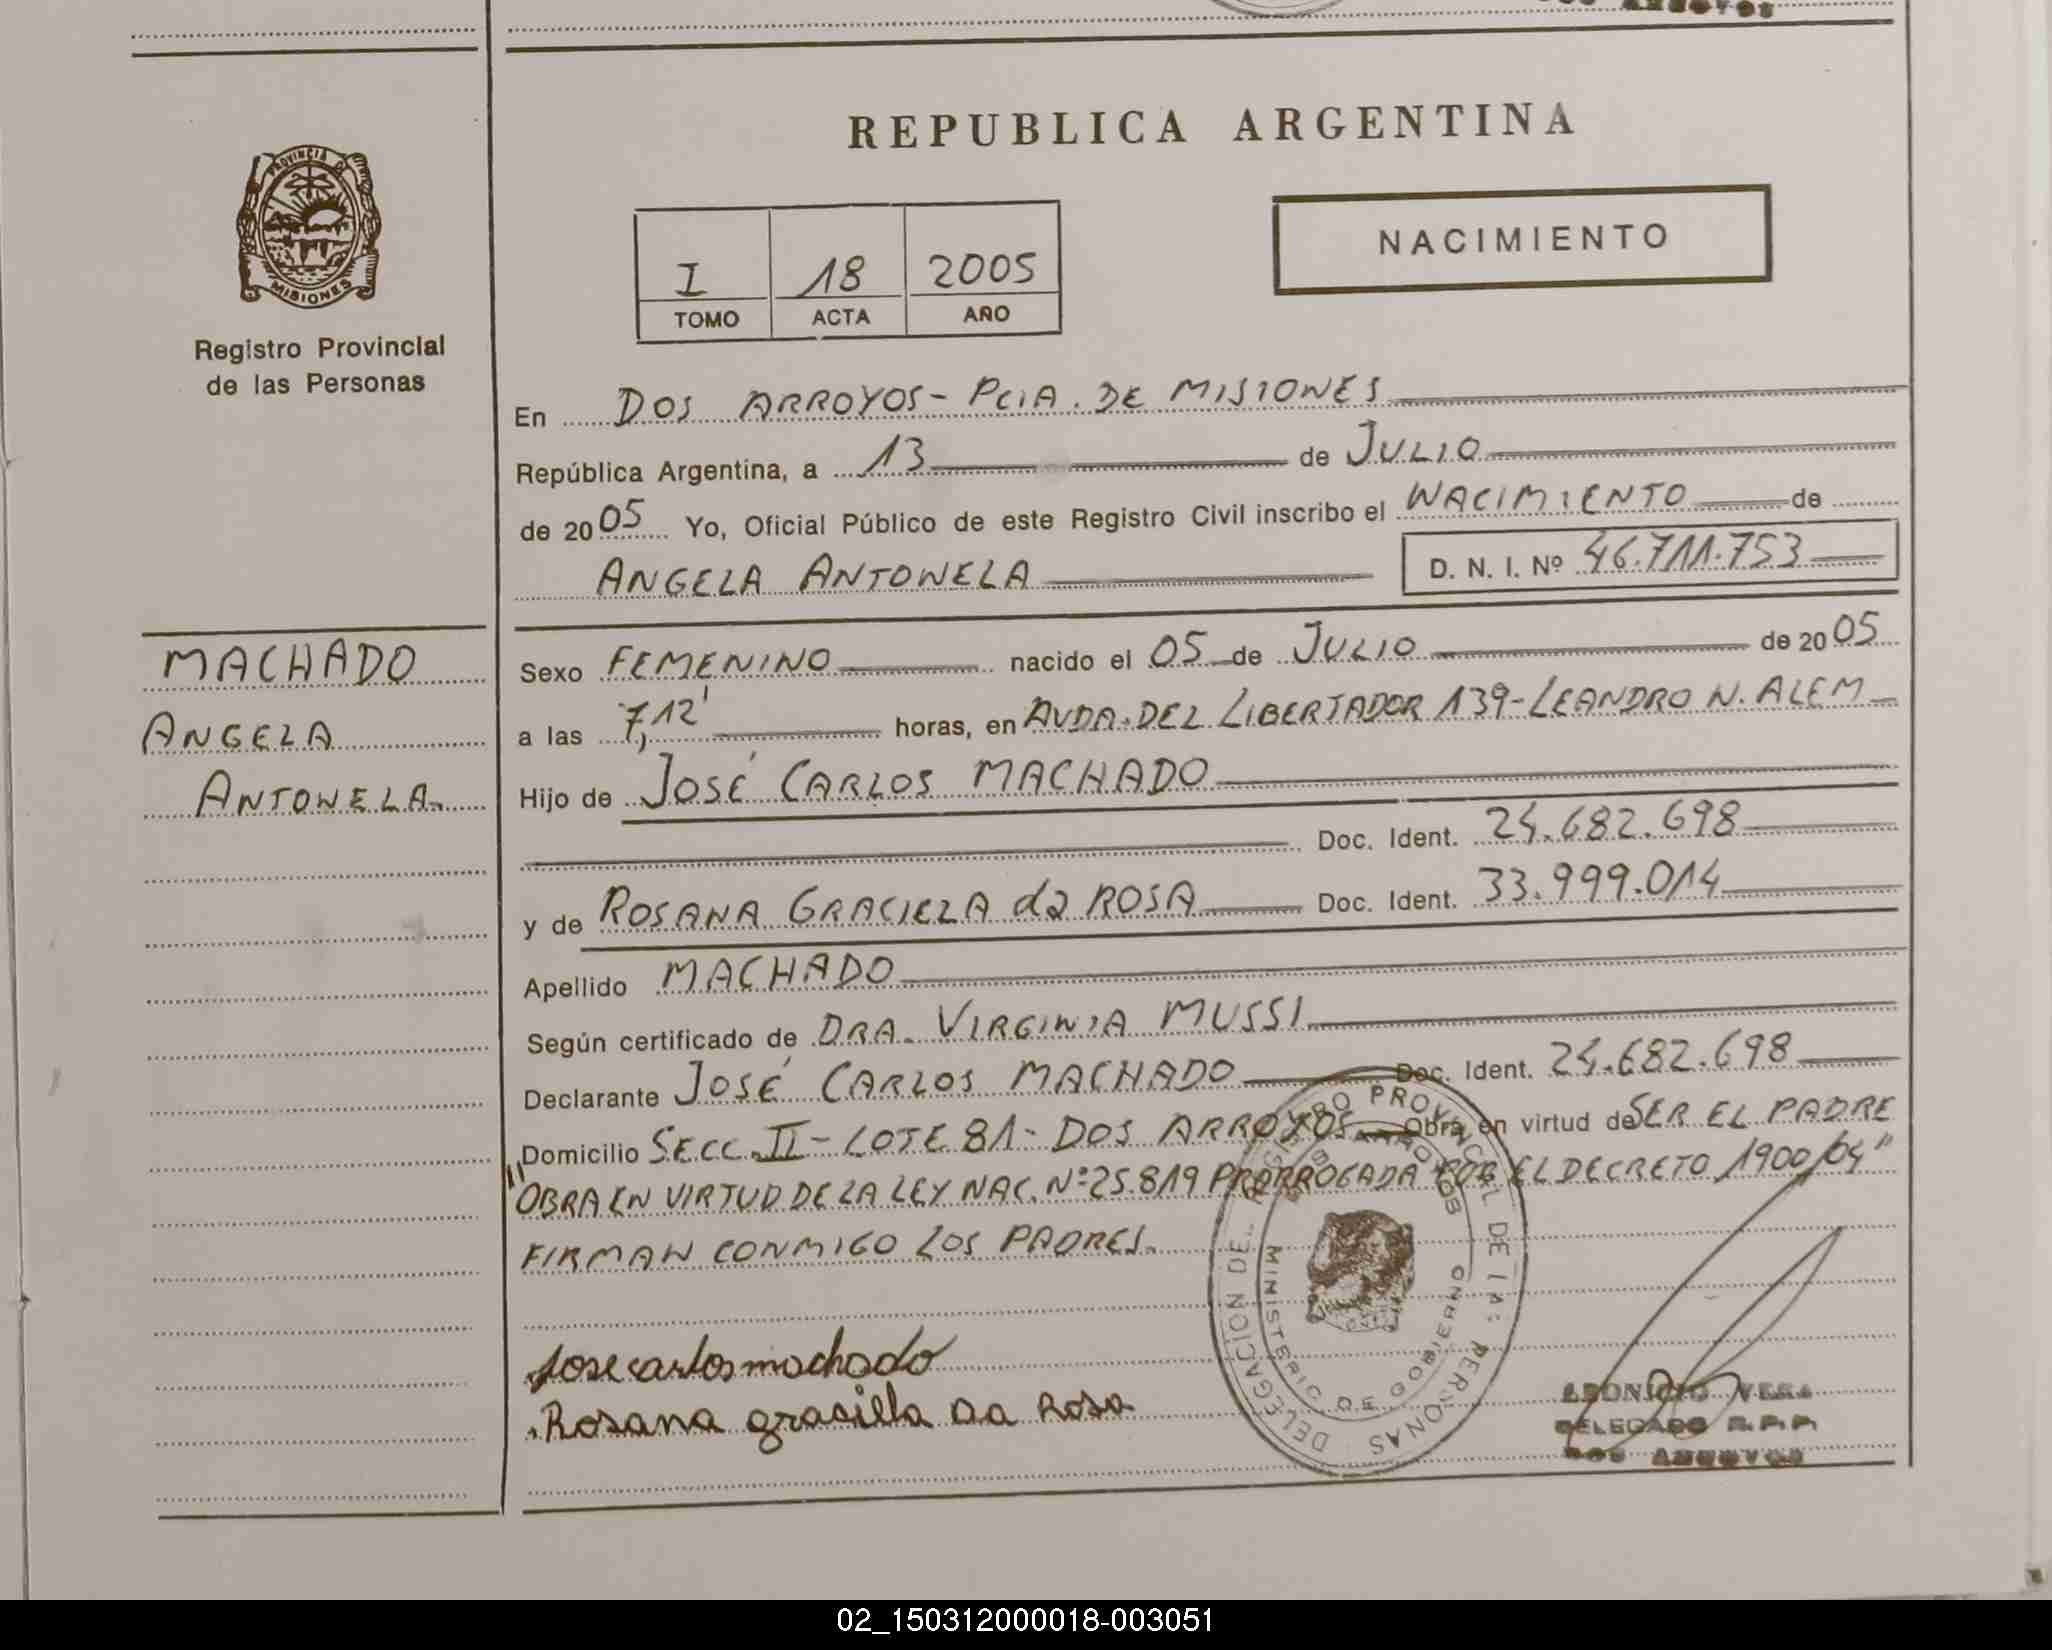 REPUBLICA ARGENTINA
PROVINCIA DE MISIONES
Registro Provincial
de las Personas
I 18 2005
TOMO ACTA AÑO
NACIMIENTO
En DOS ARROYOS - PCIA. DE MISIONES
República Argentina, a 13 de JULIO
de 2005 Yo, Oficial Público de este Registro Civil inscribo el NACIMIENTO de
ANGELA ANTONELA D. N. I. Nº 46.711.753
MACHADO
ANGELA
ANTONELA.
Sexo FEMENINO nacido el 05 de JULIO de 2005
a las 7,12' horas, en AVDA. DEL LIBERTADOR 139-LEANDRO N. ALEM
Hijo de JOSÉ CARLOS MACHADO
Doc. Ident. 24.682.698
y de ROSANA GRACIELA da ROSA Doc. Ident. 33.999.014
Apellido MACHADO
Según certificado de DRA. VIRGINIA MUSSI
Declarante JOSÉ CARLOS MACHADO Doc. Ident. 24.682.698
Domicilio SECC. II - LOTE 81 - DOS ARROYOS Obra en virtud de SER EL PADRE
"OBRA EN VIRTUD DE LA LEY NAC. Nº 25.819 PRORROGADA POR EL DECRETO 1900/04"
FIRMAN CONMIGO LOS PADRES.
Jose carlos machado
Rosana grasiella da Rosa
DELEGACION DEL REGISTRO PROVINCIAL DE LAS PERSONAS
DOS ARROYOS
MINISTERIO DE GOBIERNO
LEONICIO VERA
DELEGADO R.P.P.
DOS ARROYOS
02_150312000018-003051